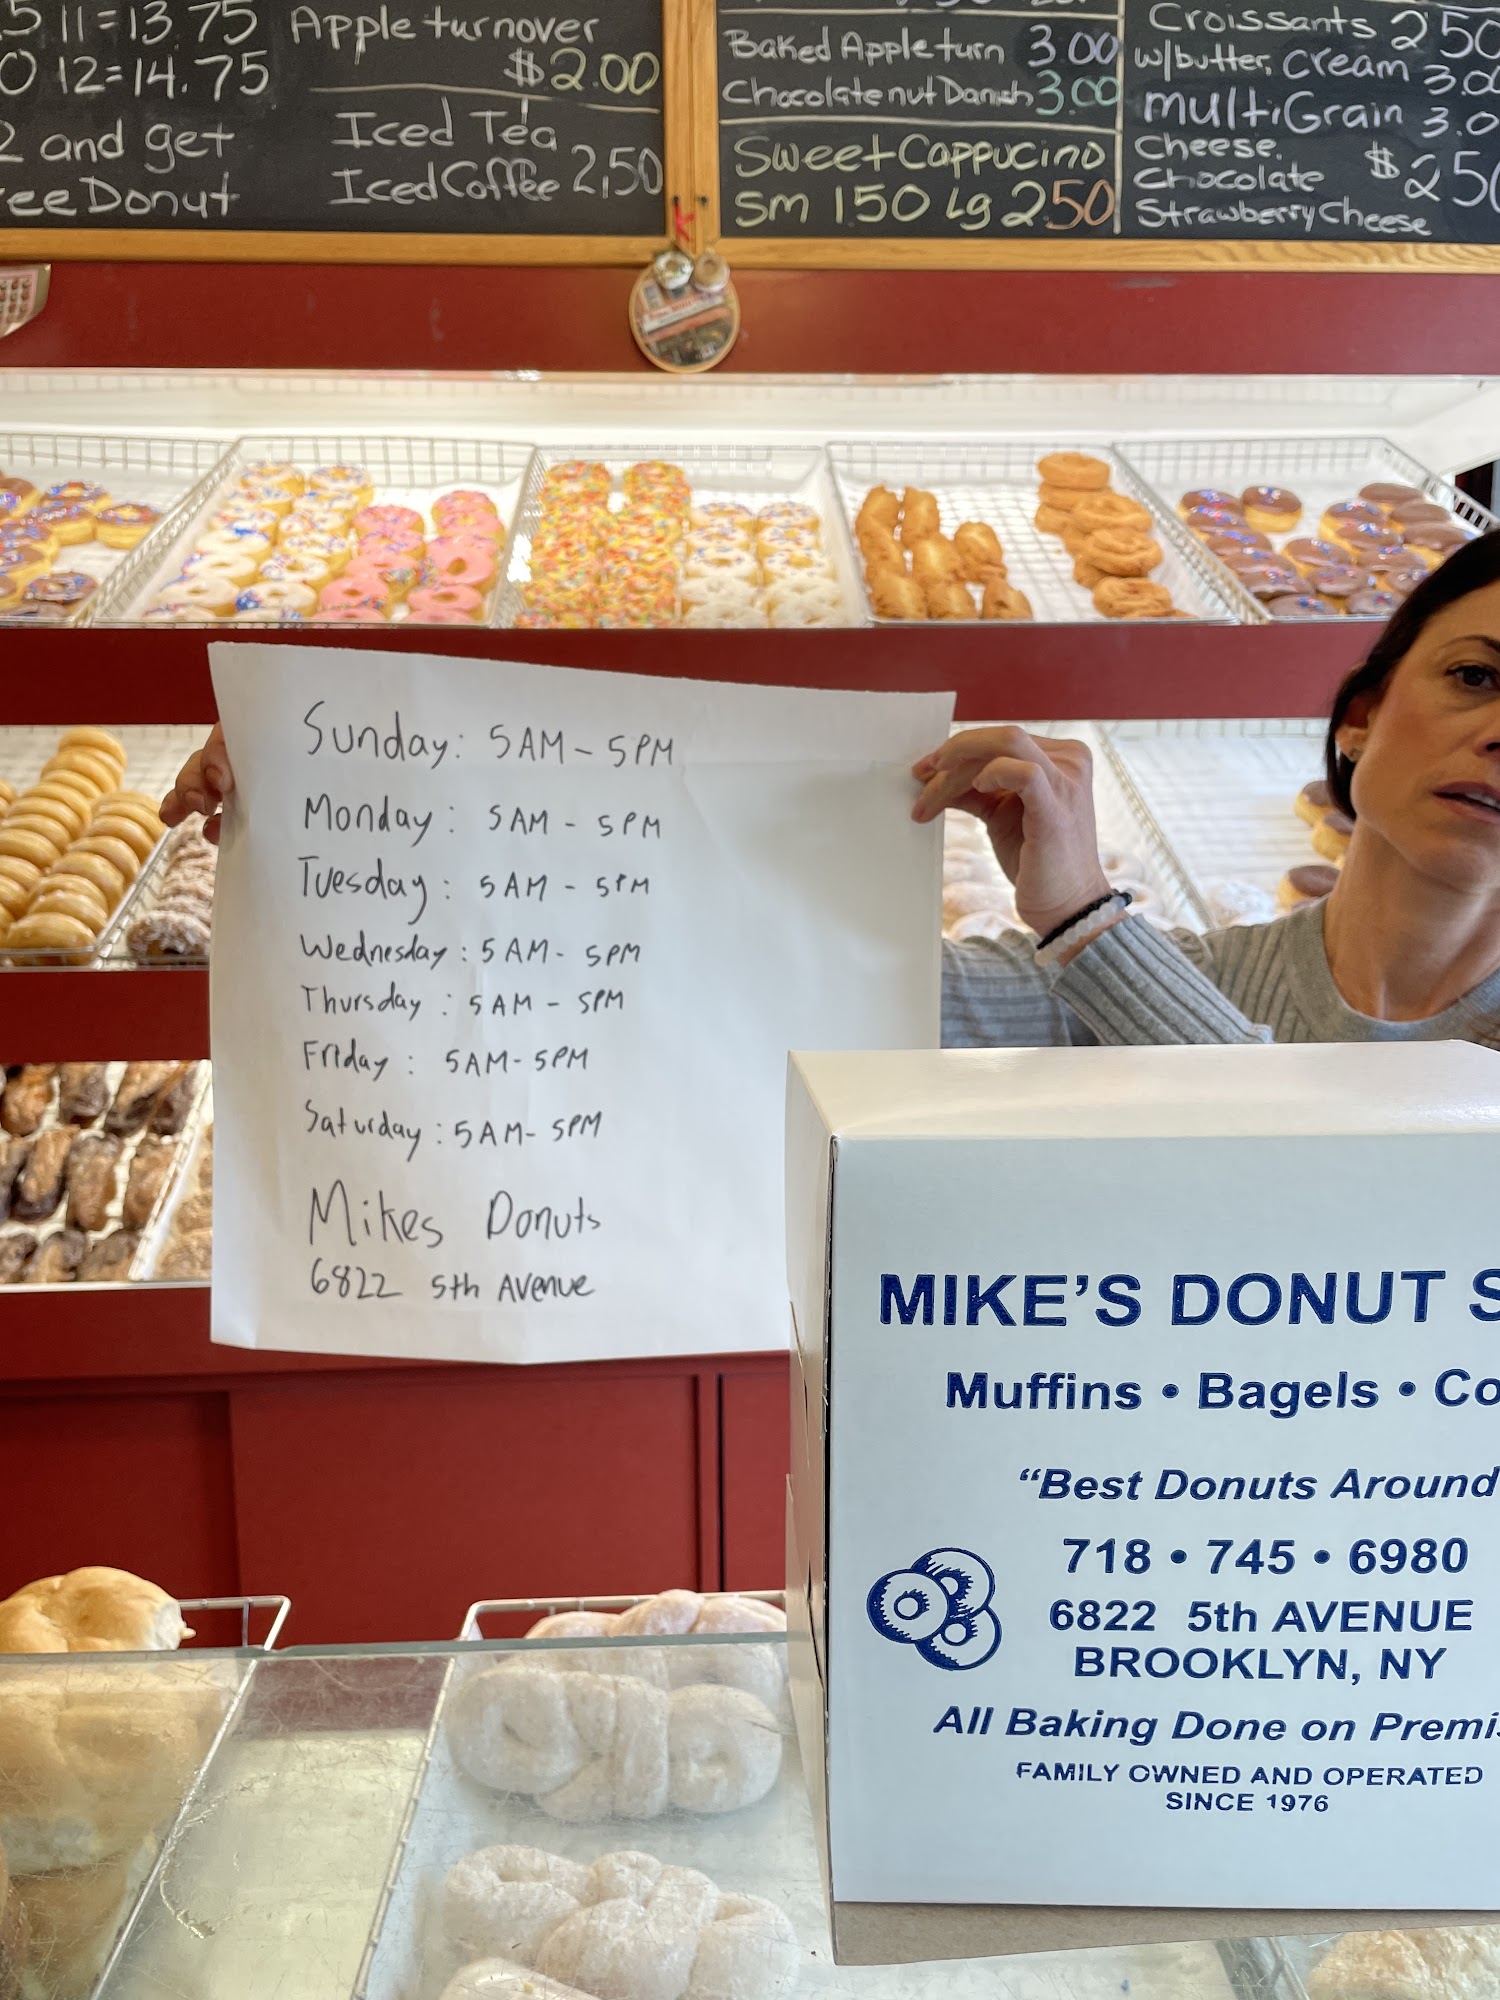 11=13.75
12=14.75
2 and get
Donut
Apple turnover
$2.00
Iced Tea
Iced Coffee 2.50
Baked Apple turn 3.00
Chocolate nut Danish 3.00
Sweet Cappucino
Sm 1.50 Lg 2.50
Croissants 2.50
w/butter, cream 3.00
multiGrain 3.0
Cheese.
Chocolate $2.50
Strawberry Cheese
Sunday: 5AM - 5PM
Monday: 5AM - 5PM
Tuesday: 5AM - 5PM
Wednesday: 5AM - 5PM
Thursday: 5AM - 5PM
Friday: 5AM - 5PM
Saturday: 5AM - 5PM
Mikes Donuts
6822 5th Avenue
MIKE'S DONUT S
Muffins • Bagels • Co
"Best Donuts Around
718 • 745 • 6980
6822 5th AVENUE
BROOKLYN, NY
All Baking Done on Premis
FAMILY OWNED AND OPERATED
SINCE 1976